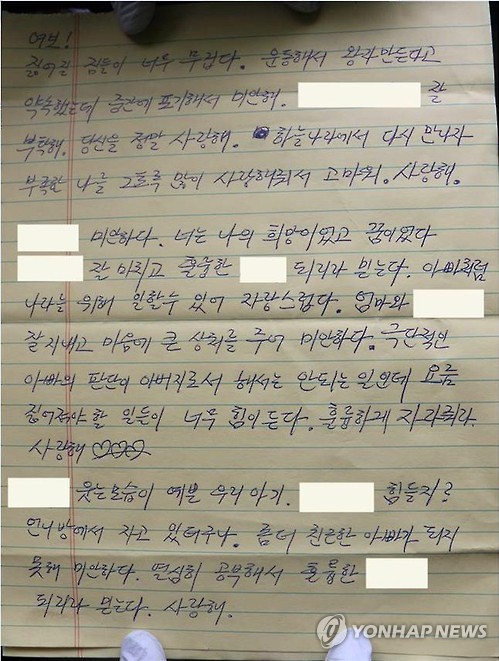 여보!
짊어질 짐들이 너무 무겁다. 운동해서 왕자만든다고
약속했는데 중간에 포기해서 미안해. 잘
부탁해. 당신을 정말 사랑해. 하늘나라에서 다시 만나자
부족한 나를 그토록 많이 사랑해줘서 고마워. 사랑해.
미안하다. 너는 나의 희망이었고 꿈이었다
잘 마치고 훌륭한 되리라 믿는다. 아빠처럼
나라를 위해 일할수 있어 자랑스럽다. 엄마와
잘 지내고 마음에 큰 상처를 주어 미안하다. 극단적인
아빠의 판단이 아버지로서 해서는 안되는 일인데 요즘
짊어져야 할 일들이 너무 힘이 든다. 훌륭하게 자라줘라
사랑해
웃는모습이 예쁜 우리아기. 힘들지?
언니방에서 자고 있더구나. 좀더 친근한 아빠가 되지
못해 미안하다. 열심히 공부해서 훌륭한
되리라 믿는다. 사랑해.
YONHAPNEWS